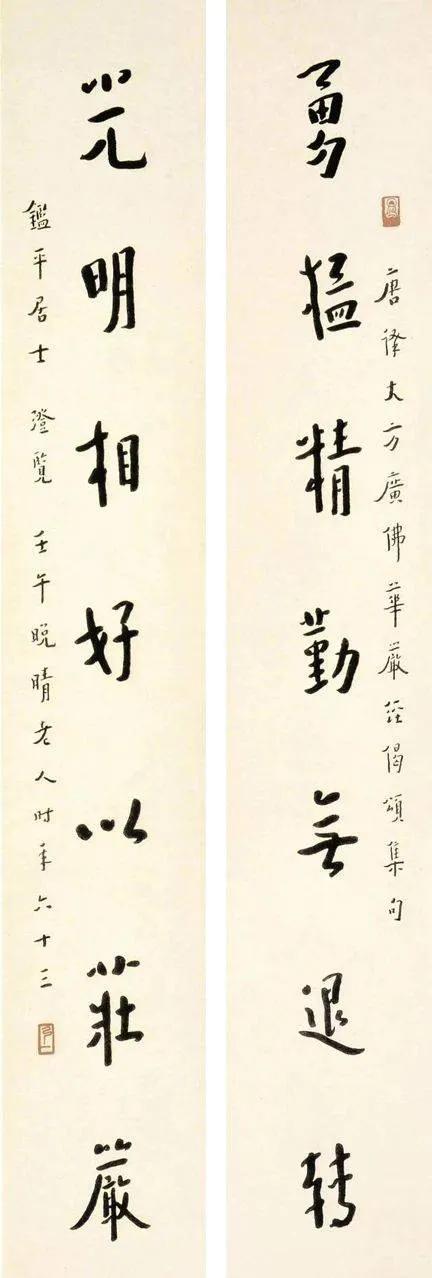 勇猛精勤無退轉
唐譯大方廣佛華嚴經偈頌集句
光明相好以莊嚴
鑑平居士 澄覽 壬午晚晴老人時年六十三